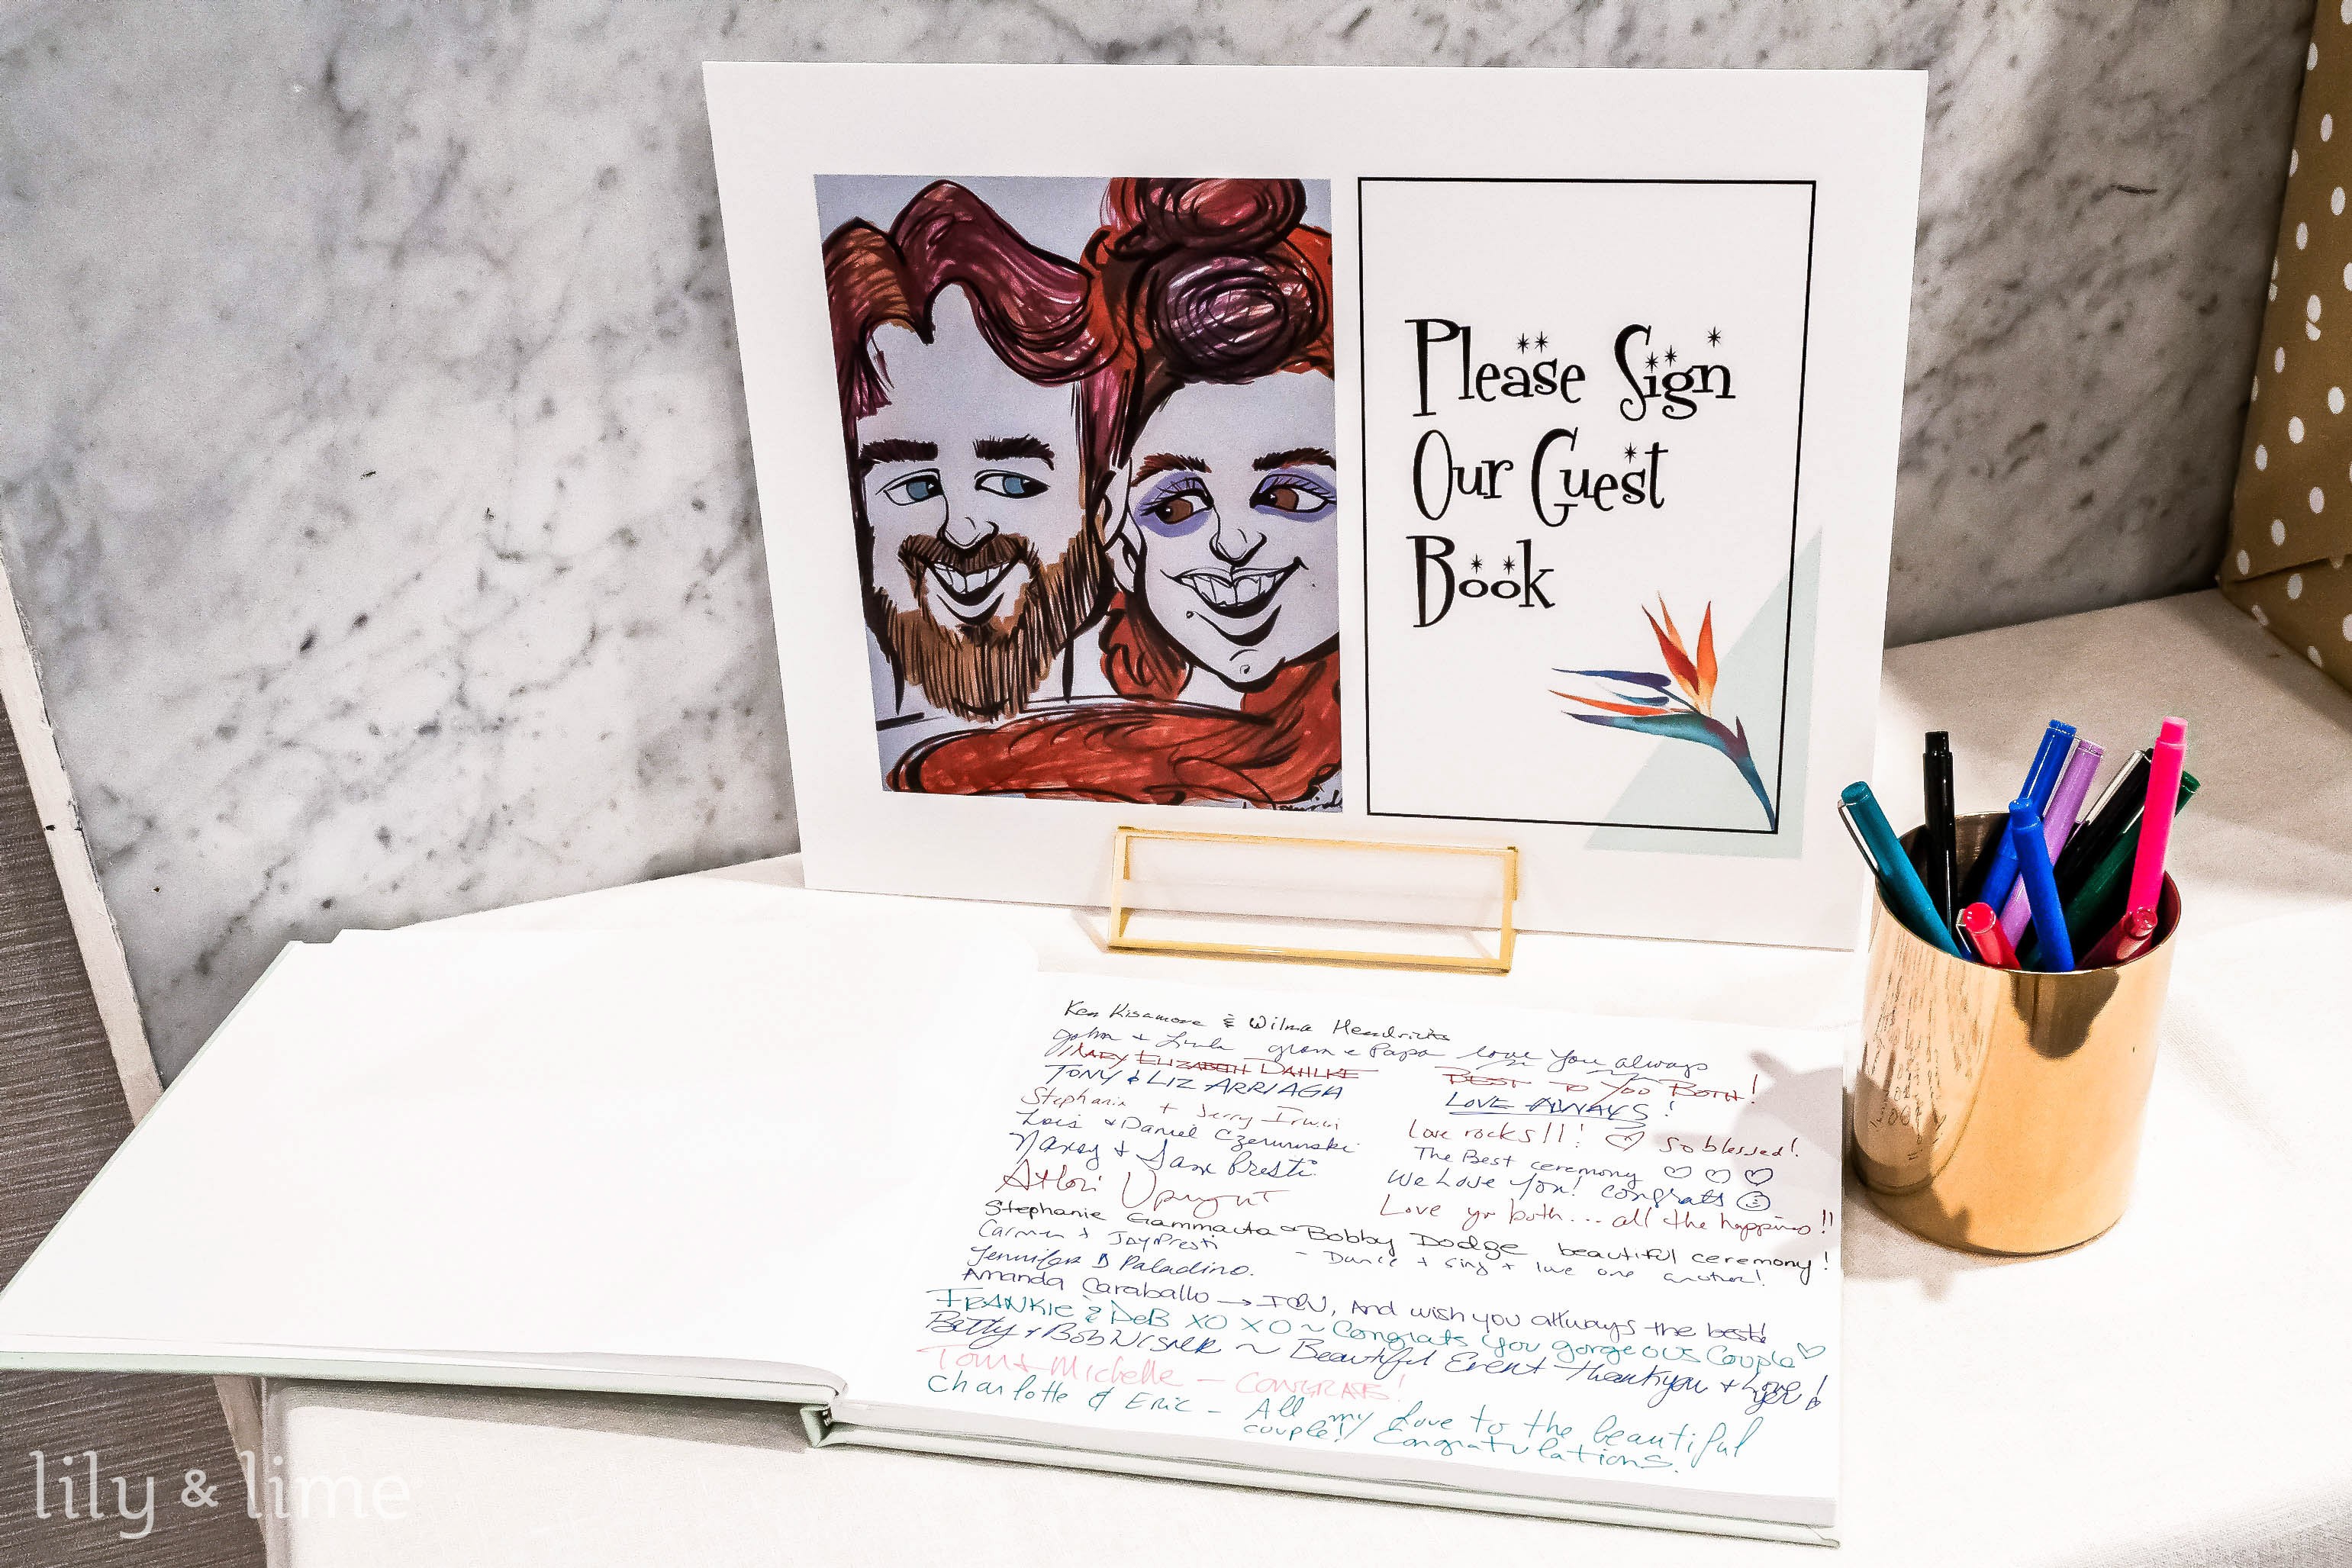 Please Sign
Our Guest
Book
Ken Kisamore & Wilma Hendricks
John + Linda Gram & Papa love you always
MARY ELIZABETH DAHLKE BEST TO YOU BOTH!
TONY & LIZ ARRIAGA LOVE ALWAYS!
Stephanie + Jerry Irwin Love rocks!!! ♡ so blessed!
Lois & Daniel The Best ceremony ♡ ♡ ♡
Nancy & Sam Presti We Love You! Congrats ☺
Love you both... all the happiness!!
Stephanie Giammauta & Bobby Dodge beautiful ceremony!
Carmen + Jay Presti - Dance + sing + love one another!
Jennifer D Paladino.
Amanda Caraballo → And wish you allways the best!
FRANKIE & DEB XO XO ~ Congrats You gorgeous Couple ♡
Betty & Bob ~ Beautiful Event Thank you +
Tom + Michelle - CONGRATS!
Charlotte & Eric - All my Love to the beautiful
couple! Congratulations.
lily & lime